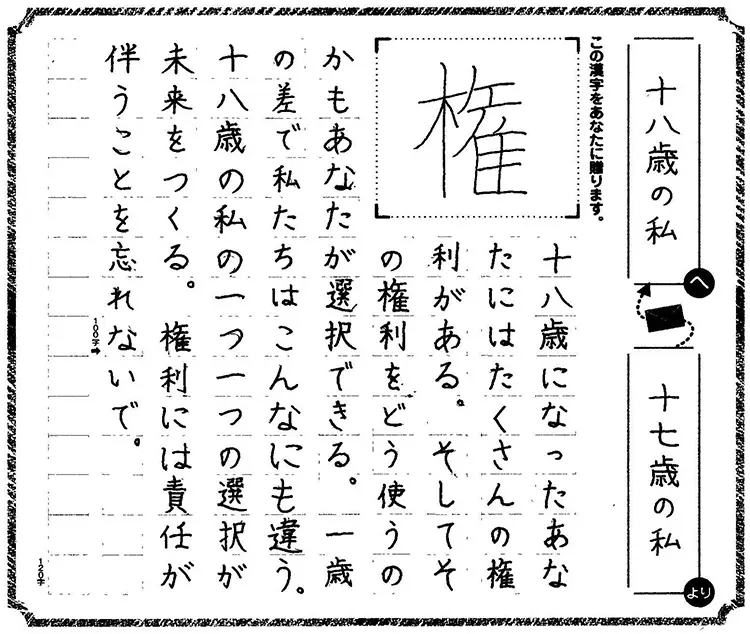 十八歳の私
へ
十七歳の私
より
この漢字をあなたに贈ります。
権
十八歳になったあな
たにはたくさんの権
利がある。そしてそ
の権利をどう使うの
かもあなたが選択できる。一歳
の差で私たちはこんなにも違う。
十八歳の私の一つ一つの選択が
未来をつくる。権利には責任が
伴うことを忘れないで。
100字
120字